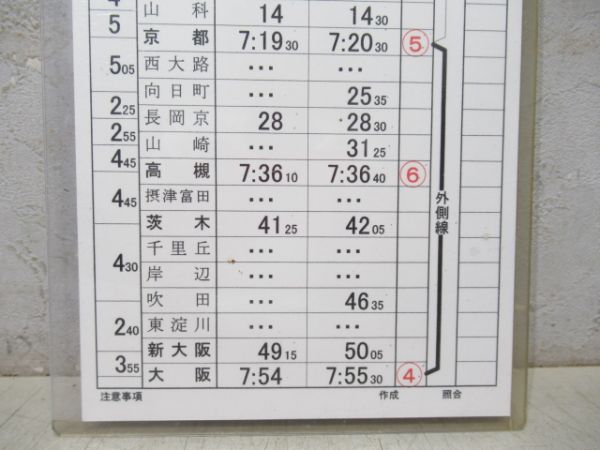 4
山科 14 14 30
5 京都 7:19 30 7:20 30 ⑤
5 05 西大路 … …
向日町 … 25 35
2 25 長岡京 28 28 30
2 55 山崎 … 31 25
4 45 高槻 7:36 10 7:36 40 ⑥
4 45 摂津富田 … …
茨木 41 25 42 05
外側線
千里丘 … …
4 30 岸辺 … …
吹田 … 46 35
2 40 東淀川 … …
新大阪 49 15 50 05
3 55 大阪 7:54 7:55 30 ④
注意事項 作成 照合